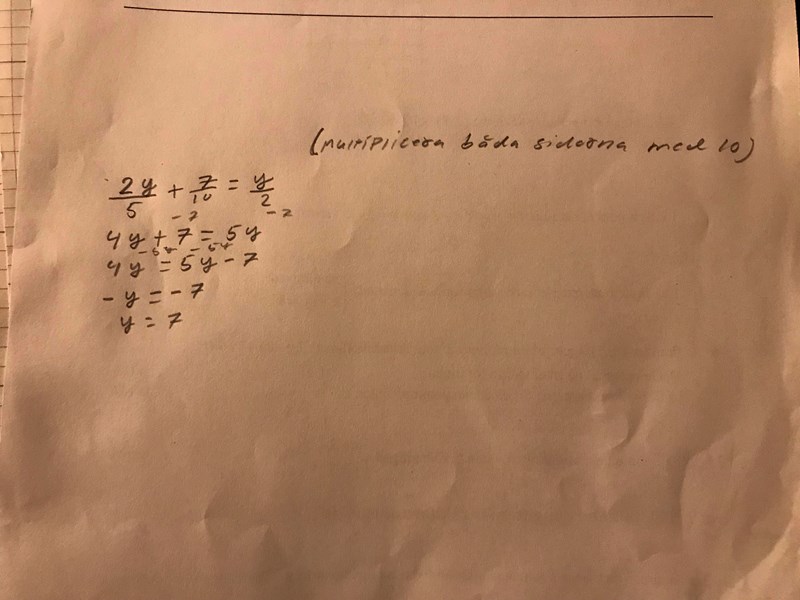 (multiplicera båda sidorna med 10)
2y/5 + 7/10 = y/2
-7 -7
4y + 7 = 5y
-5y -5y
4y = 5y - 7
- y = - 7
y = 7